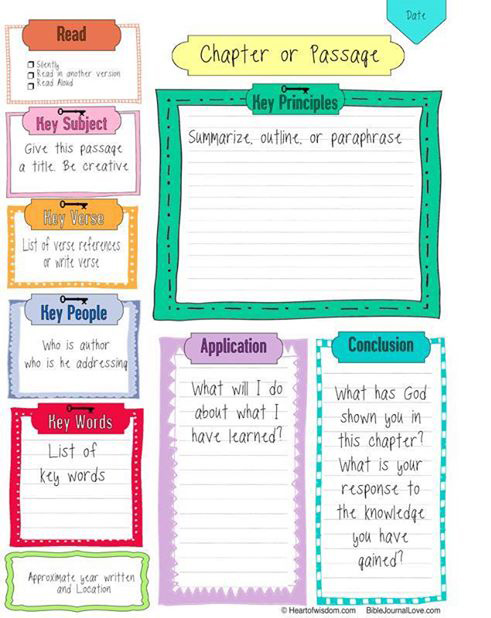 Date
Chapter or Passage
Read
Silently
Read in another version
Read Aloud
Key Subject
Give this passage
a title. Be creative
Key Verse
List of verse references
or write verse
Key People
Who is author
who is he addressing
Key Words
List of
key words
Approximate year written
and Location
Key Principles
Summarize, outline, or paraphrase
Application
What will I do
about what I
have learned?
Conclusion
What has God
shown you in
this chapter?
What is your
response to
the knowledge
you have
gained?
© Heartofwisdom.com BibleJournalLove.com